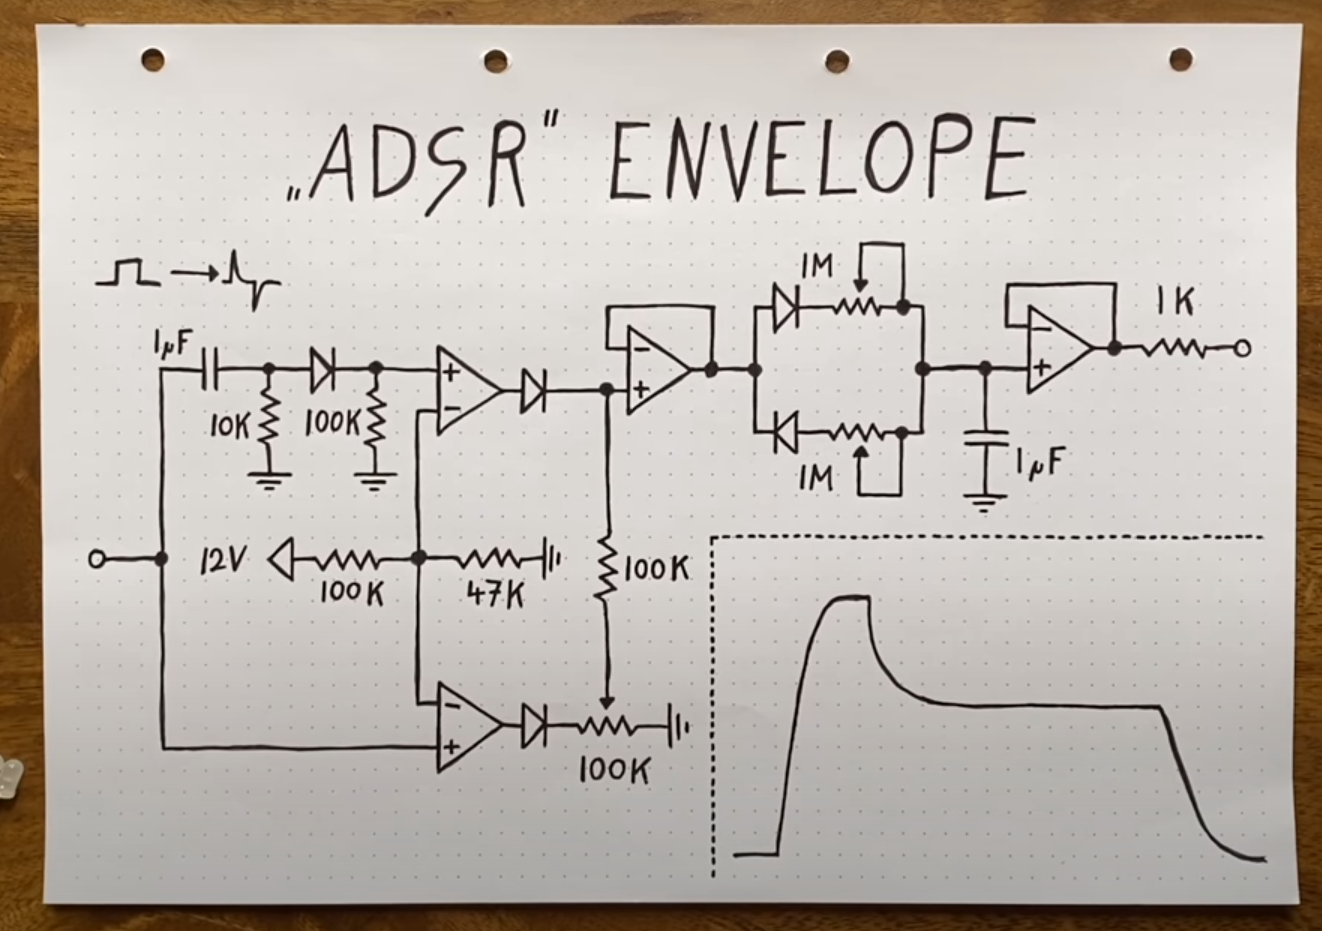 „ADSR" ENVELOPE
1M
1K
1µF
10K
100K
+
-
-
+
-
+
1M
1µF
12V
100K
47K
100K
-
+
100K